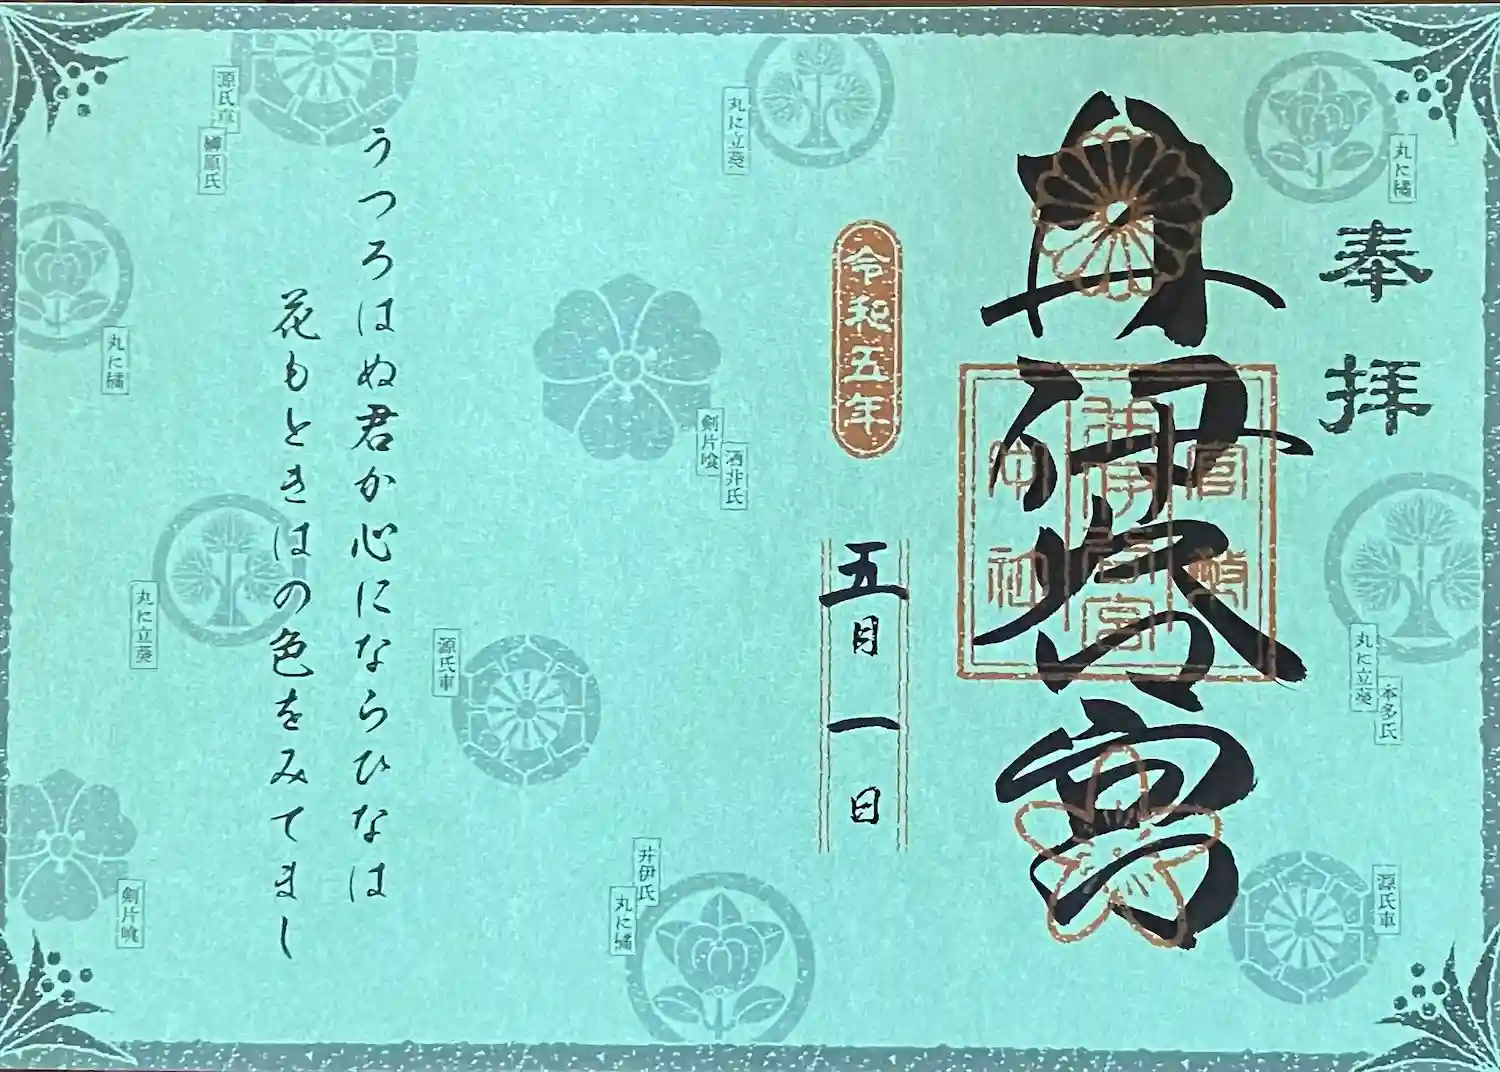 奉拝
井伊谷宮
官幣
井伊谷宮
中社
令和五年
五月一日
うつろはぬ君か心にならひなは
花もときはの色をみてまし
丸に橘
丸に立葵
本多氏
源氏車
丸に立葵
剣片喰
酒井氏
井伊氏
丸に橘
源氏車
源氏車
榊原氏
丸に立葵
丸に橘
剣片喰